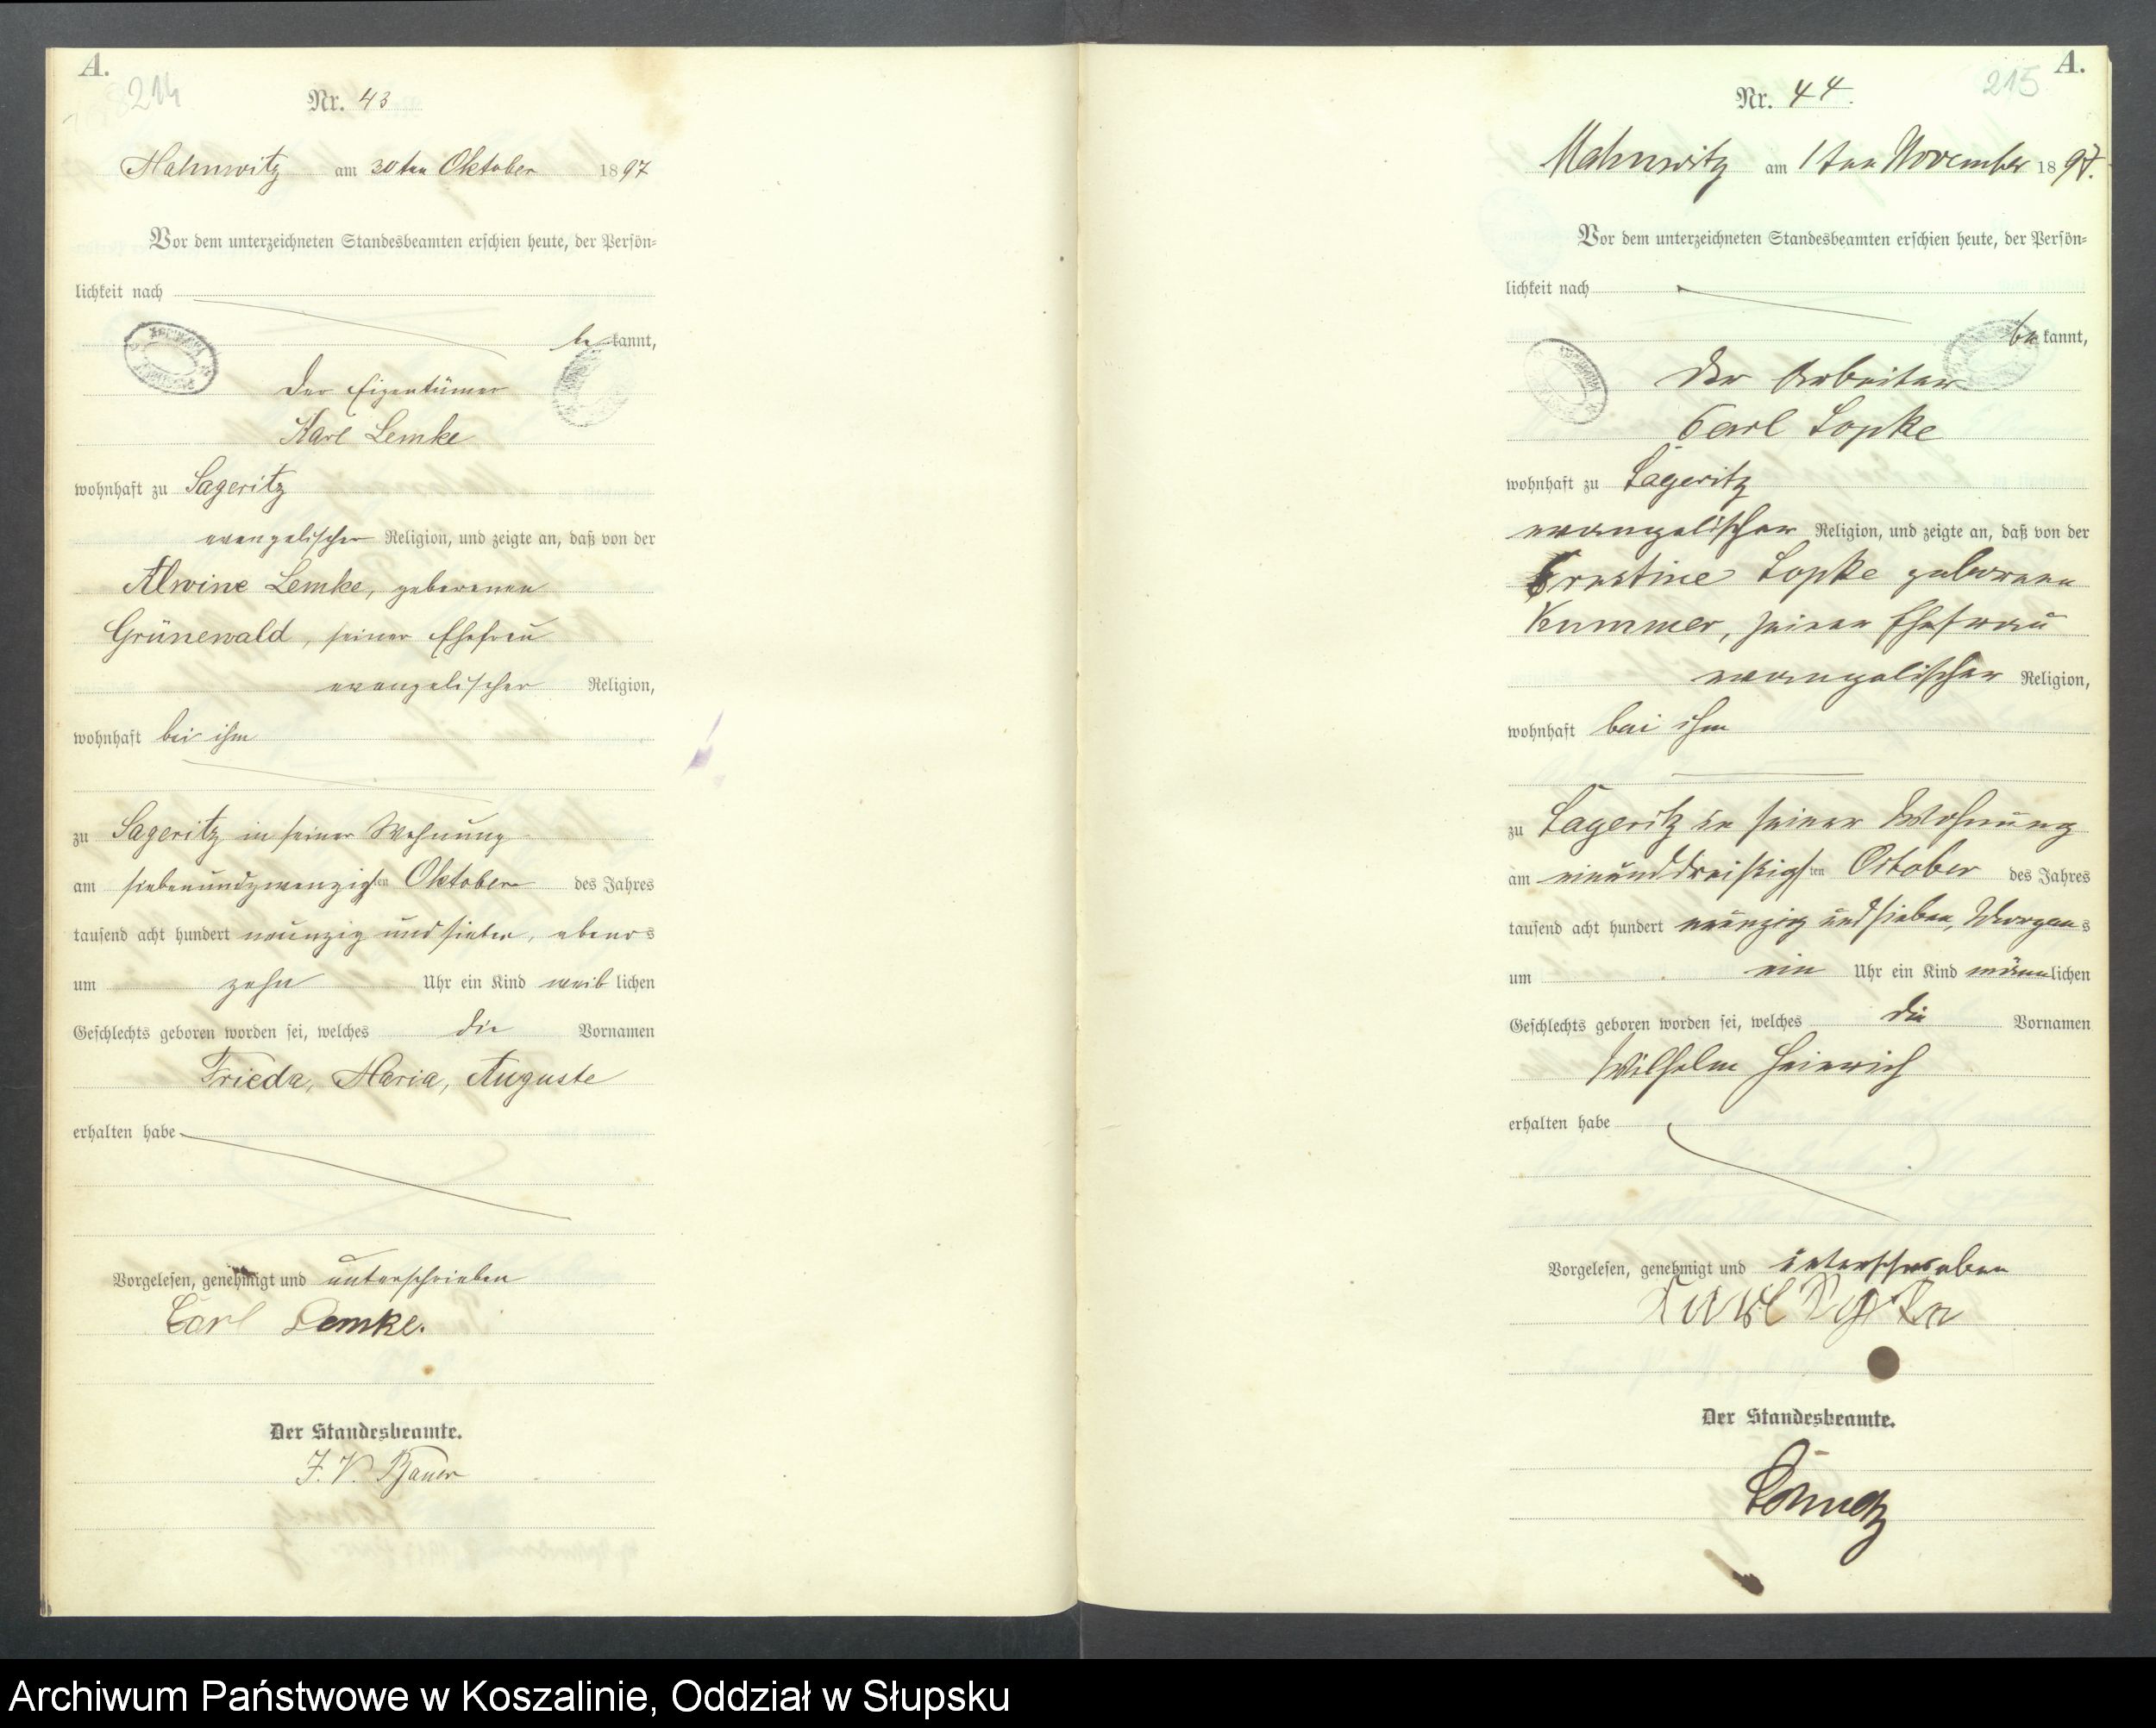 A.
214
Nr. 43
Mahnwitz am 30ten Oktober 1897
Vor dem unterzeichneten Standesbeamten erschien heute, der Persön=
lichkeit nach
be kannt,
der Eigentümer
Karl Lemke
wohnhaft zu Sageritz
evangelischer Religion, und zeigte an, daß von der
Alwine Lemke, geborenen
Grünewald, seiner Ehefrau
evangelischer Religion,
wohnhaft bei ihm
zu Sageritz in seiner Wohnung
am siebenundzwanzigsten Oktober des Jahres
tausend acht hundert neunzig und sieben, abends
um zehn Uhr ein Kind weiblichen
Geschlechts geboren worden sei, welches die Vornamen
Frieda, Maria, Auguste
erhalten habe
Vorgelesen, genehmigt und unterschrieben
Carl Lemke.
Der Standesbeamte.
J. V. Bauer
A.
215
Nr. 44.
Mahnwitz am 1ten November 1897.
Vor dem unterzeichneten Standesbeamten erschien heute, der Persön=
lichkeit nach
be kannt,
der Arbeiter
Carl Lopke
wohnhaft zu Sageritz
evangelischer Religion, und zeigte an, daß von der
Ernstine Lopke geborenen
Kummer, seiner Ehefrau
evangelischer Religion,
wohnhaft bei ihm
zu Sageritz in seiner Wohnung
am einunddreißigsten October des Jahres
tausend acht hundert neunzig und sieben, Morgens
um ein Uhr ein Kind männlichen
Geschlechts geboren worden sei, welches die Vornamen
Wilhelm Heinrich
erhalten habe
Vorgelesen, genehmigt und unterschrieben
Karl
Der Standesbeamte.
Archiwum Państwowe w Koszalinie, Oddział w Słupsku